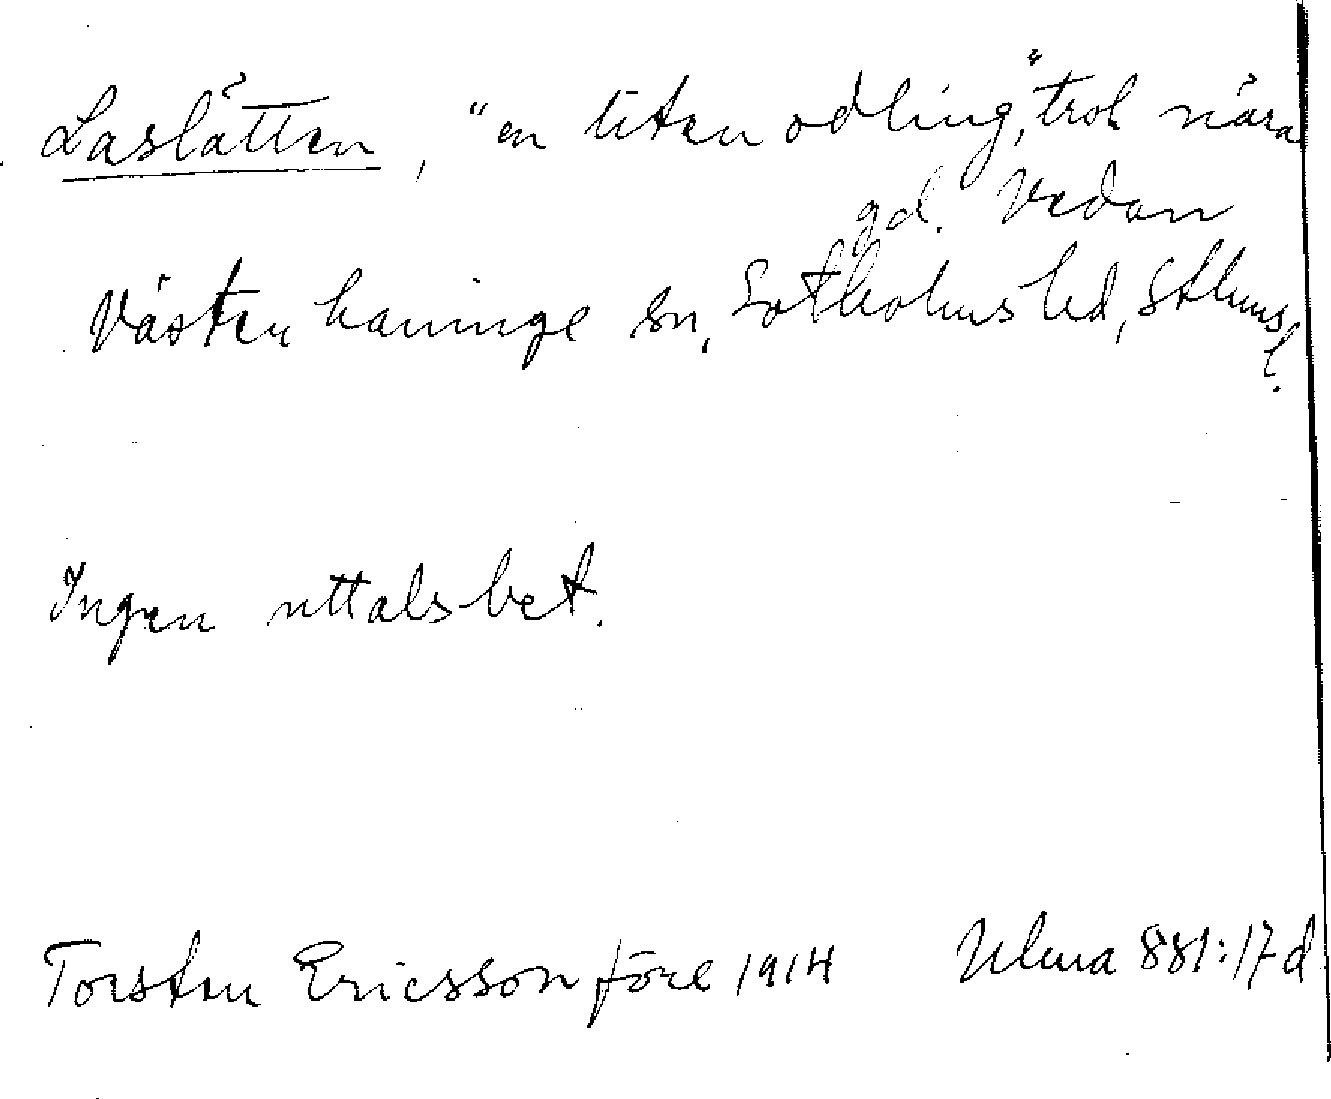 Laslåtten, "en liten odling", trol nära
gd. Vedan
Västerhaninge sn, Sotholms hd, Sthms
l.
Ingen uttalsbet.
Torsten Ericsson före 1914 Ulma 881:17d